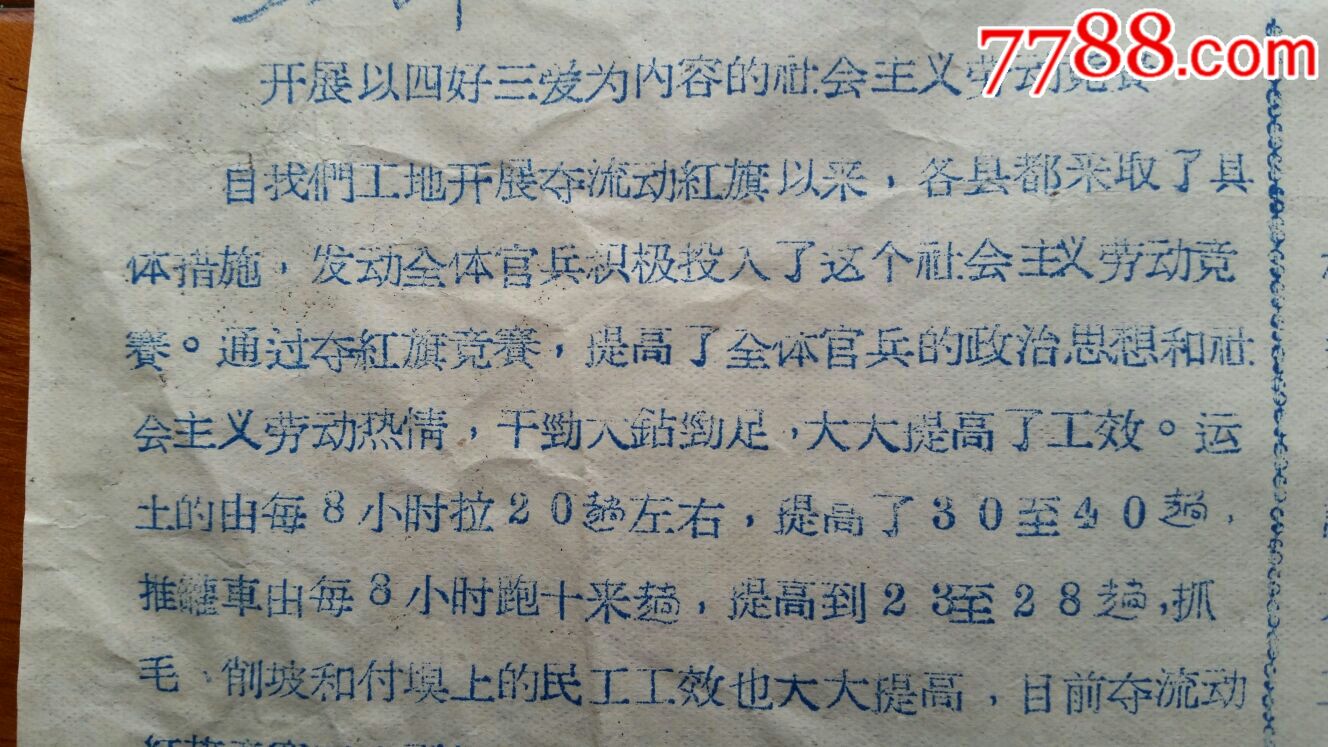 7788.com
开展以四好三爱为内容的社会主义劳动竞赛
自我們工地开展夺流动紅旗以来，各县都采取了具
体措施，发动全体官兵积极投入了这个社会主义劳动竞
賽。通过夺紅旗竞賽，提高了全体官兵的政治思想和社
会主义劳动热情，干勁大鉆勁足，大大提高了工效。运
土的由每8小时拉20趟左右，提高了30至40趟，
推罐車由每8小时跑十来趟，提高到23至28趟，抓
毛、削坡和付垻上的民工工效也大大提高，目前夺流动